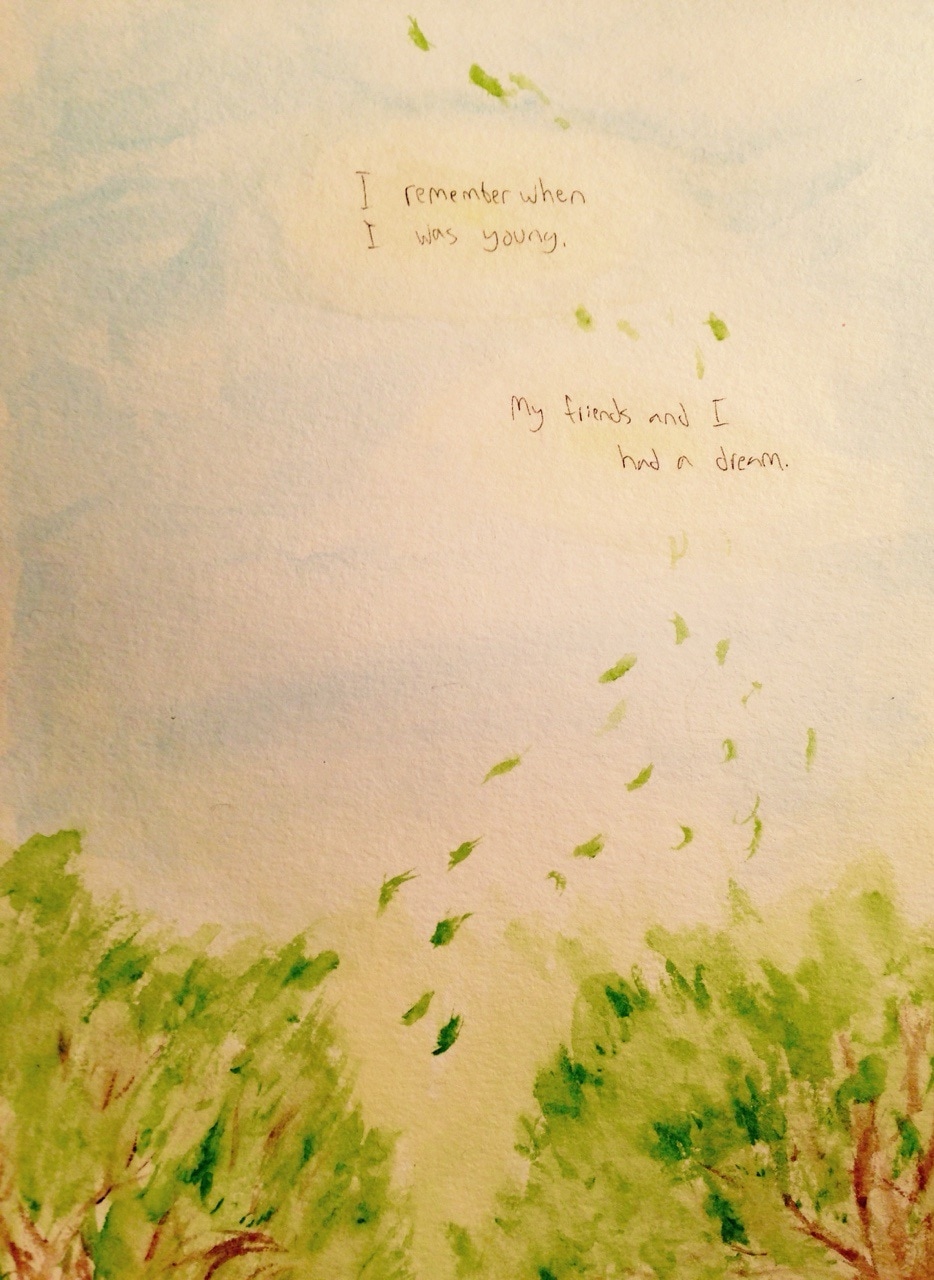 I remember when
I was young.
My friends and I
had a dream.